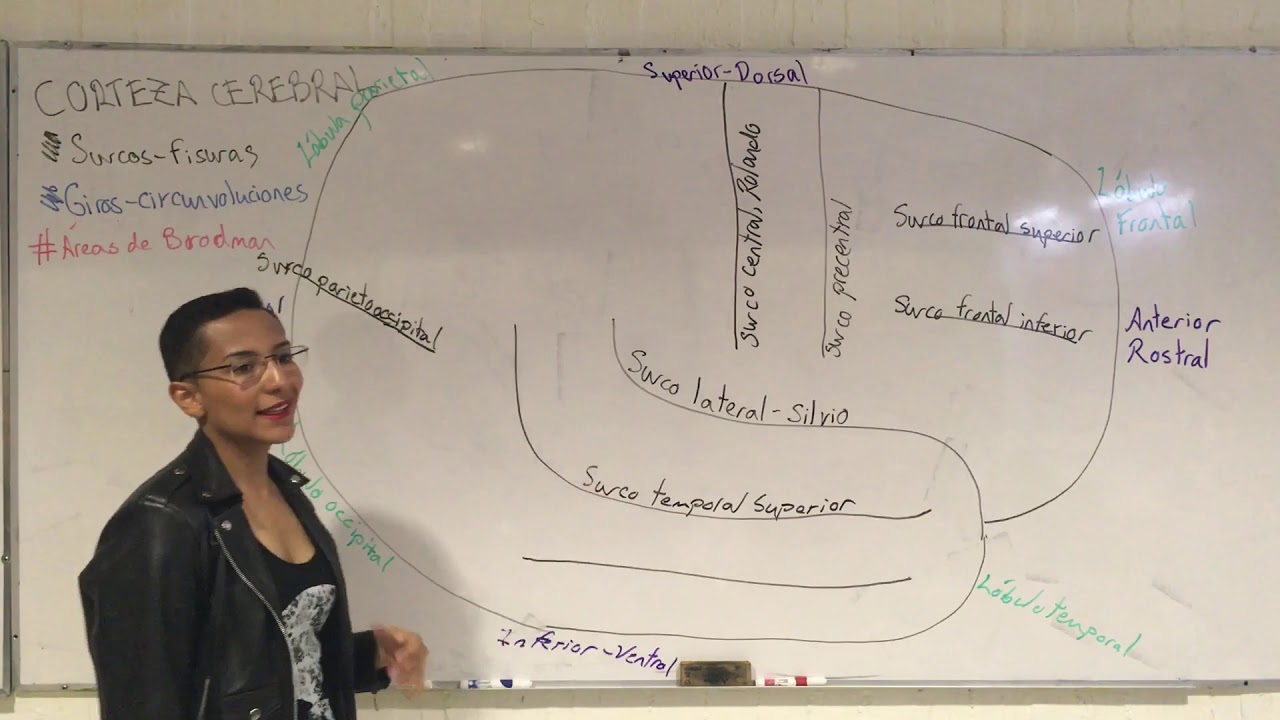 CORTEZA CEREBRAL
Surcos-fisuras
Giros-circunvoluciones
#Áreas de Brodman
Lóbulo parietal
Superior-Dorsal
Surco central, Rolando
Surco precentral
Surco frontal superior
Lóbulo
Frontal
Surco parietooccipital
Surco frontal inferior
Anterior
Rostral
Surco lateral-Silvio
Surco temporal Superior
occipital
Lóbulo temporal
Inferior-Ventral